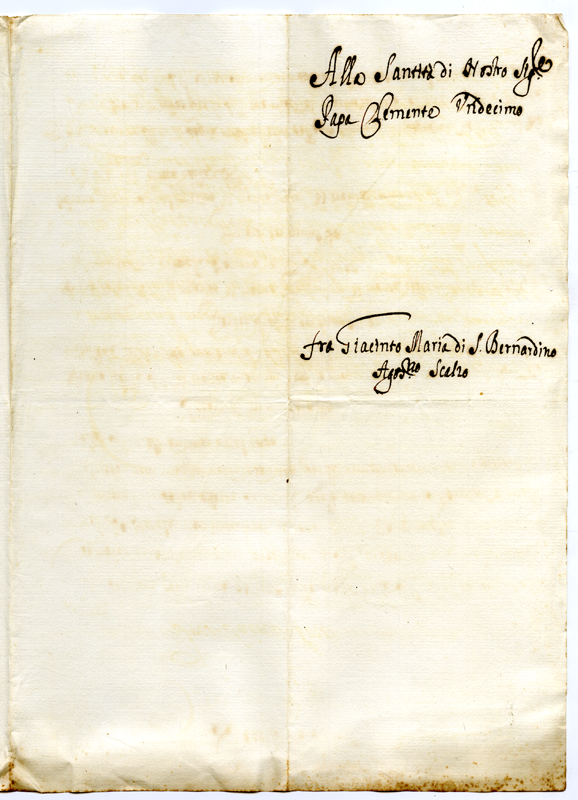 Alla Santità di Nostro Sig.re
Papa Clemente Undecimo
fra Giacinto Maria di S. Bernardino
Agos.no Scalzo